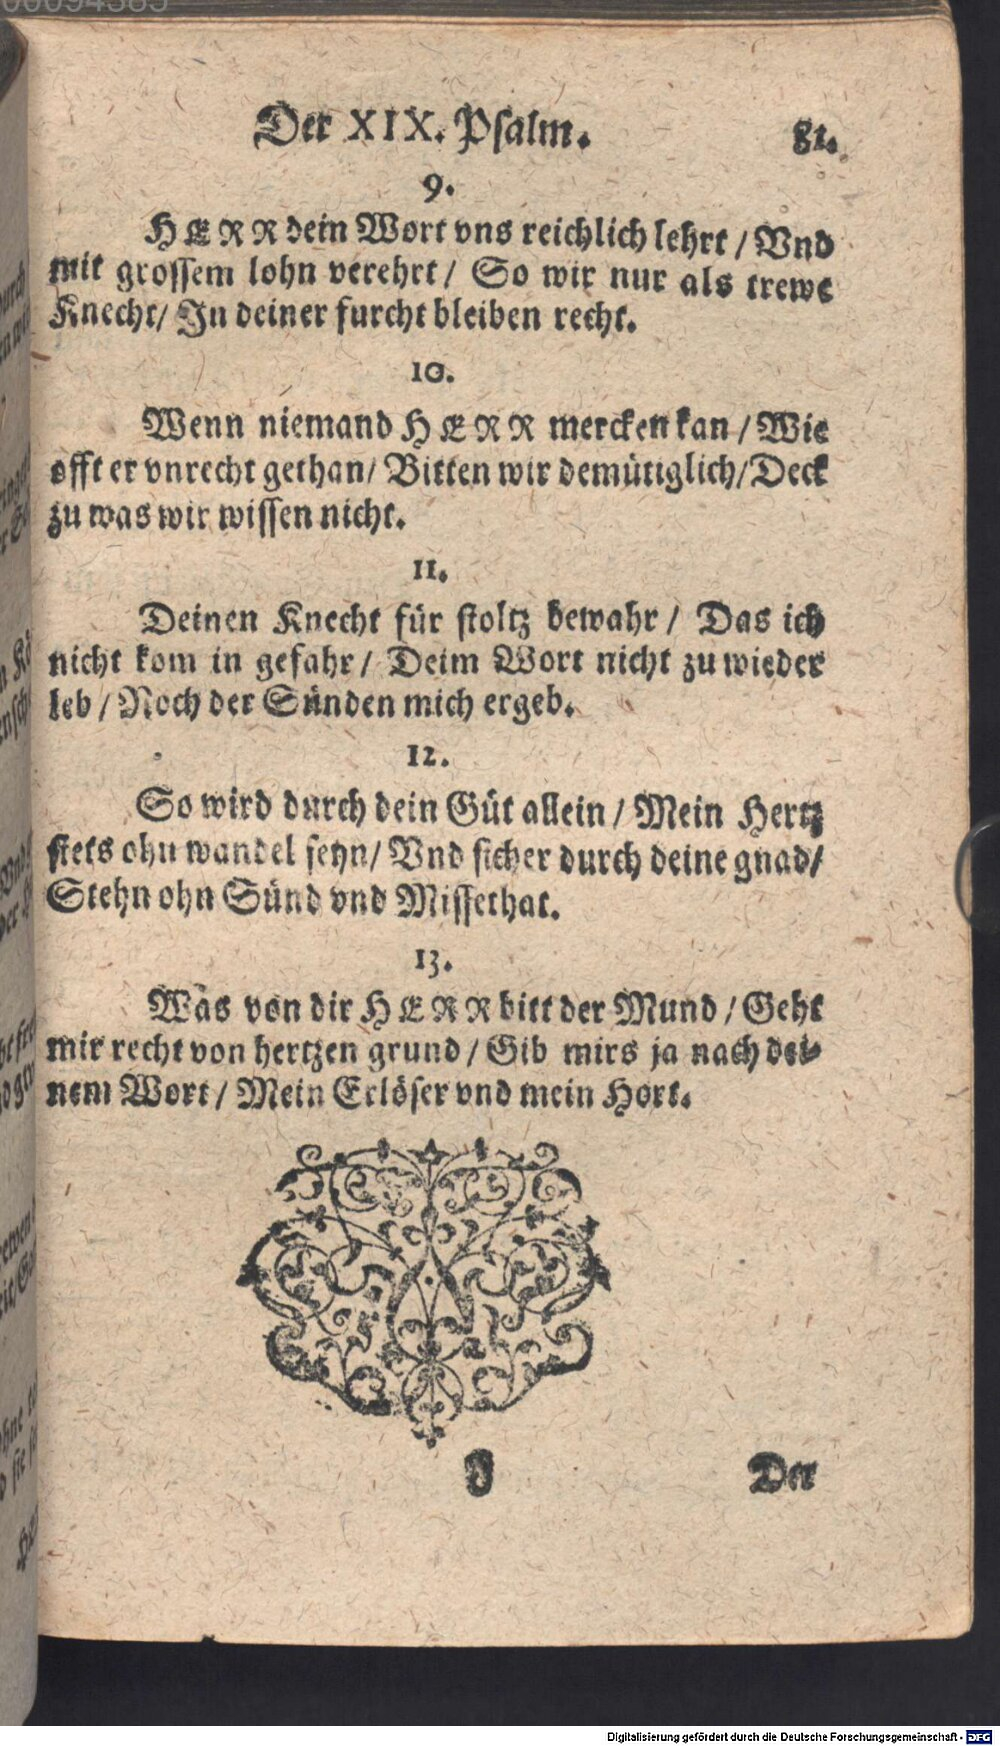 00094385
Der XIX. Psalm. 81.
9.
HERR dein Wort vns reichlich lehrt / Vnd
mit grossem lohn verehrt / So wir nur als trewe
Knecht / In deiner furcht bleiben recht.
10.
Wenn niemand HERR mercken kan / Wie
offt er vnrecht gethan / Bitten wir demütiglich / Deck
zu was wir wissen nicht.
11.
Deinen Knecht für stoltz bewahr / Das ich
nicht kom in gefahr / Deim Wort nicht zu wieder
leb / Noch der Sünden mich ergeb.
12.
So wird durch dein Güt allein / Mein Hertz
stets ohn wandel seyn / Vnd sicher durch deine gnad /
Stehn ohn Sünd vnd Missethat.
13.
Was von dir HERR bitt der Mund / Geht
mir recht von hertzen grund / Gib mirs ja nach dei-
nem Wort / Mein Erlöser vnd mein Hort.
J Der
Digitalisierung gefördert durch die Deutsche Forschungsgemeinschaft - DFG